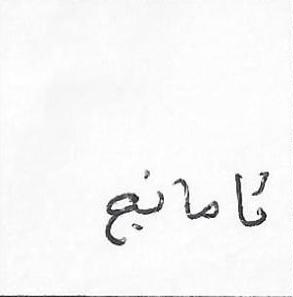 ئامانج